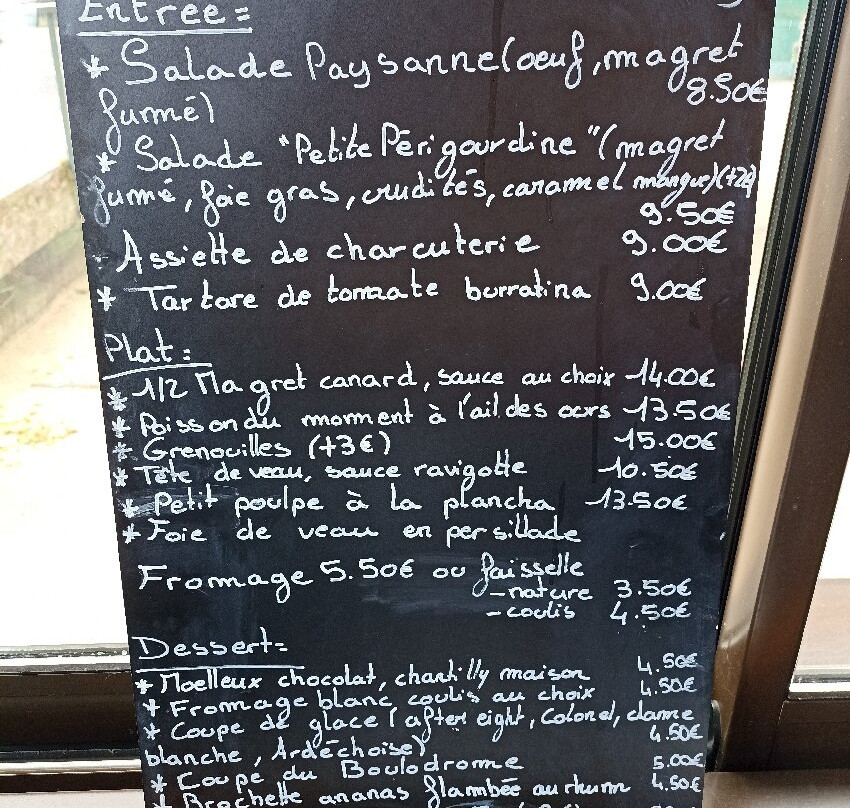 Entrée=
* Salade Paysanne (oeuf, magret
fumé) 8.50€
* Salade "Petite Périgourdine" (magret
fumé, foie gras, crudités, caramel mangue) (+2€)
9.50€
- Assiette de charcuterie 9.00€
* Tartare de tomate burratina 9.00€
Plat:
* 1/2 Magret canard, sauce au choix 14.00€
* Poisson du moment à l'ail des ours 13.50€
* Grenouilles (+3€) 15.00€
* Tête de veau, sauce ravigotte 10.50€
* Petit poulpe à la plancha 13.50€
* Foie de veau en persillade
Fromage 5.50€ ou faisselle
- nature 3.50€
- coulis 4.50€
Dessert=
* Moelleux chocolat, chantilly maison 4.50€
* Fromage blanc coulis au choix 4.50€
* Coupe de glace (after eight, Colonel, dame
blanche, Ardéchoise) 4.50€
* Coupe du Boulodrome 5.00€
* Brochette ananas flambée au rhum 4.50€